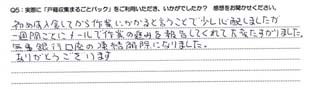 Q5：実際に「戸籍収集まるごとパック」をご利用いただき、いかがでしたか？　感想をお聞かせください。
初め入金してから作業にかかると言うことで少し心配しましたが
一週間ごとにメールで作業の進み具合を報告してくれて大変たすかりました。
無事銀行口座の凍結解除になりました。
ありがとうございます